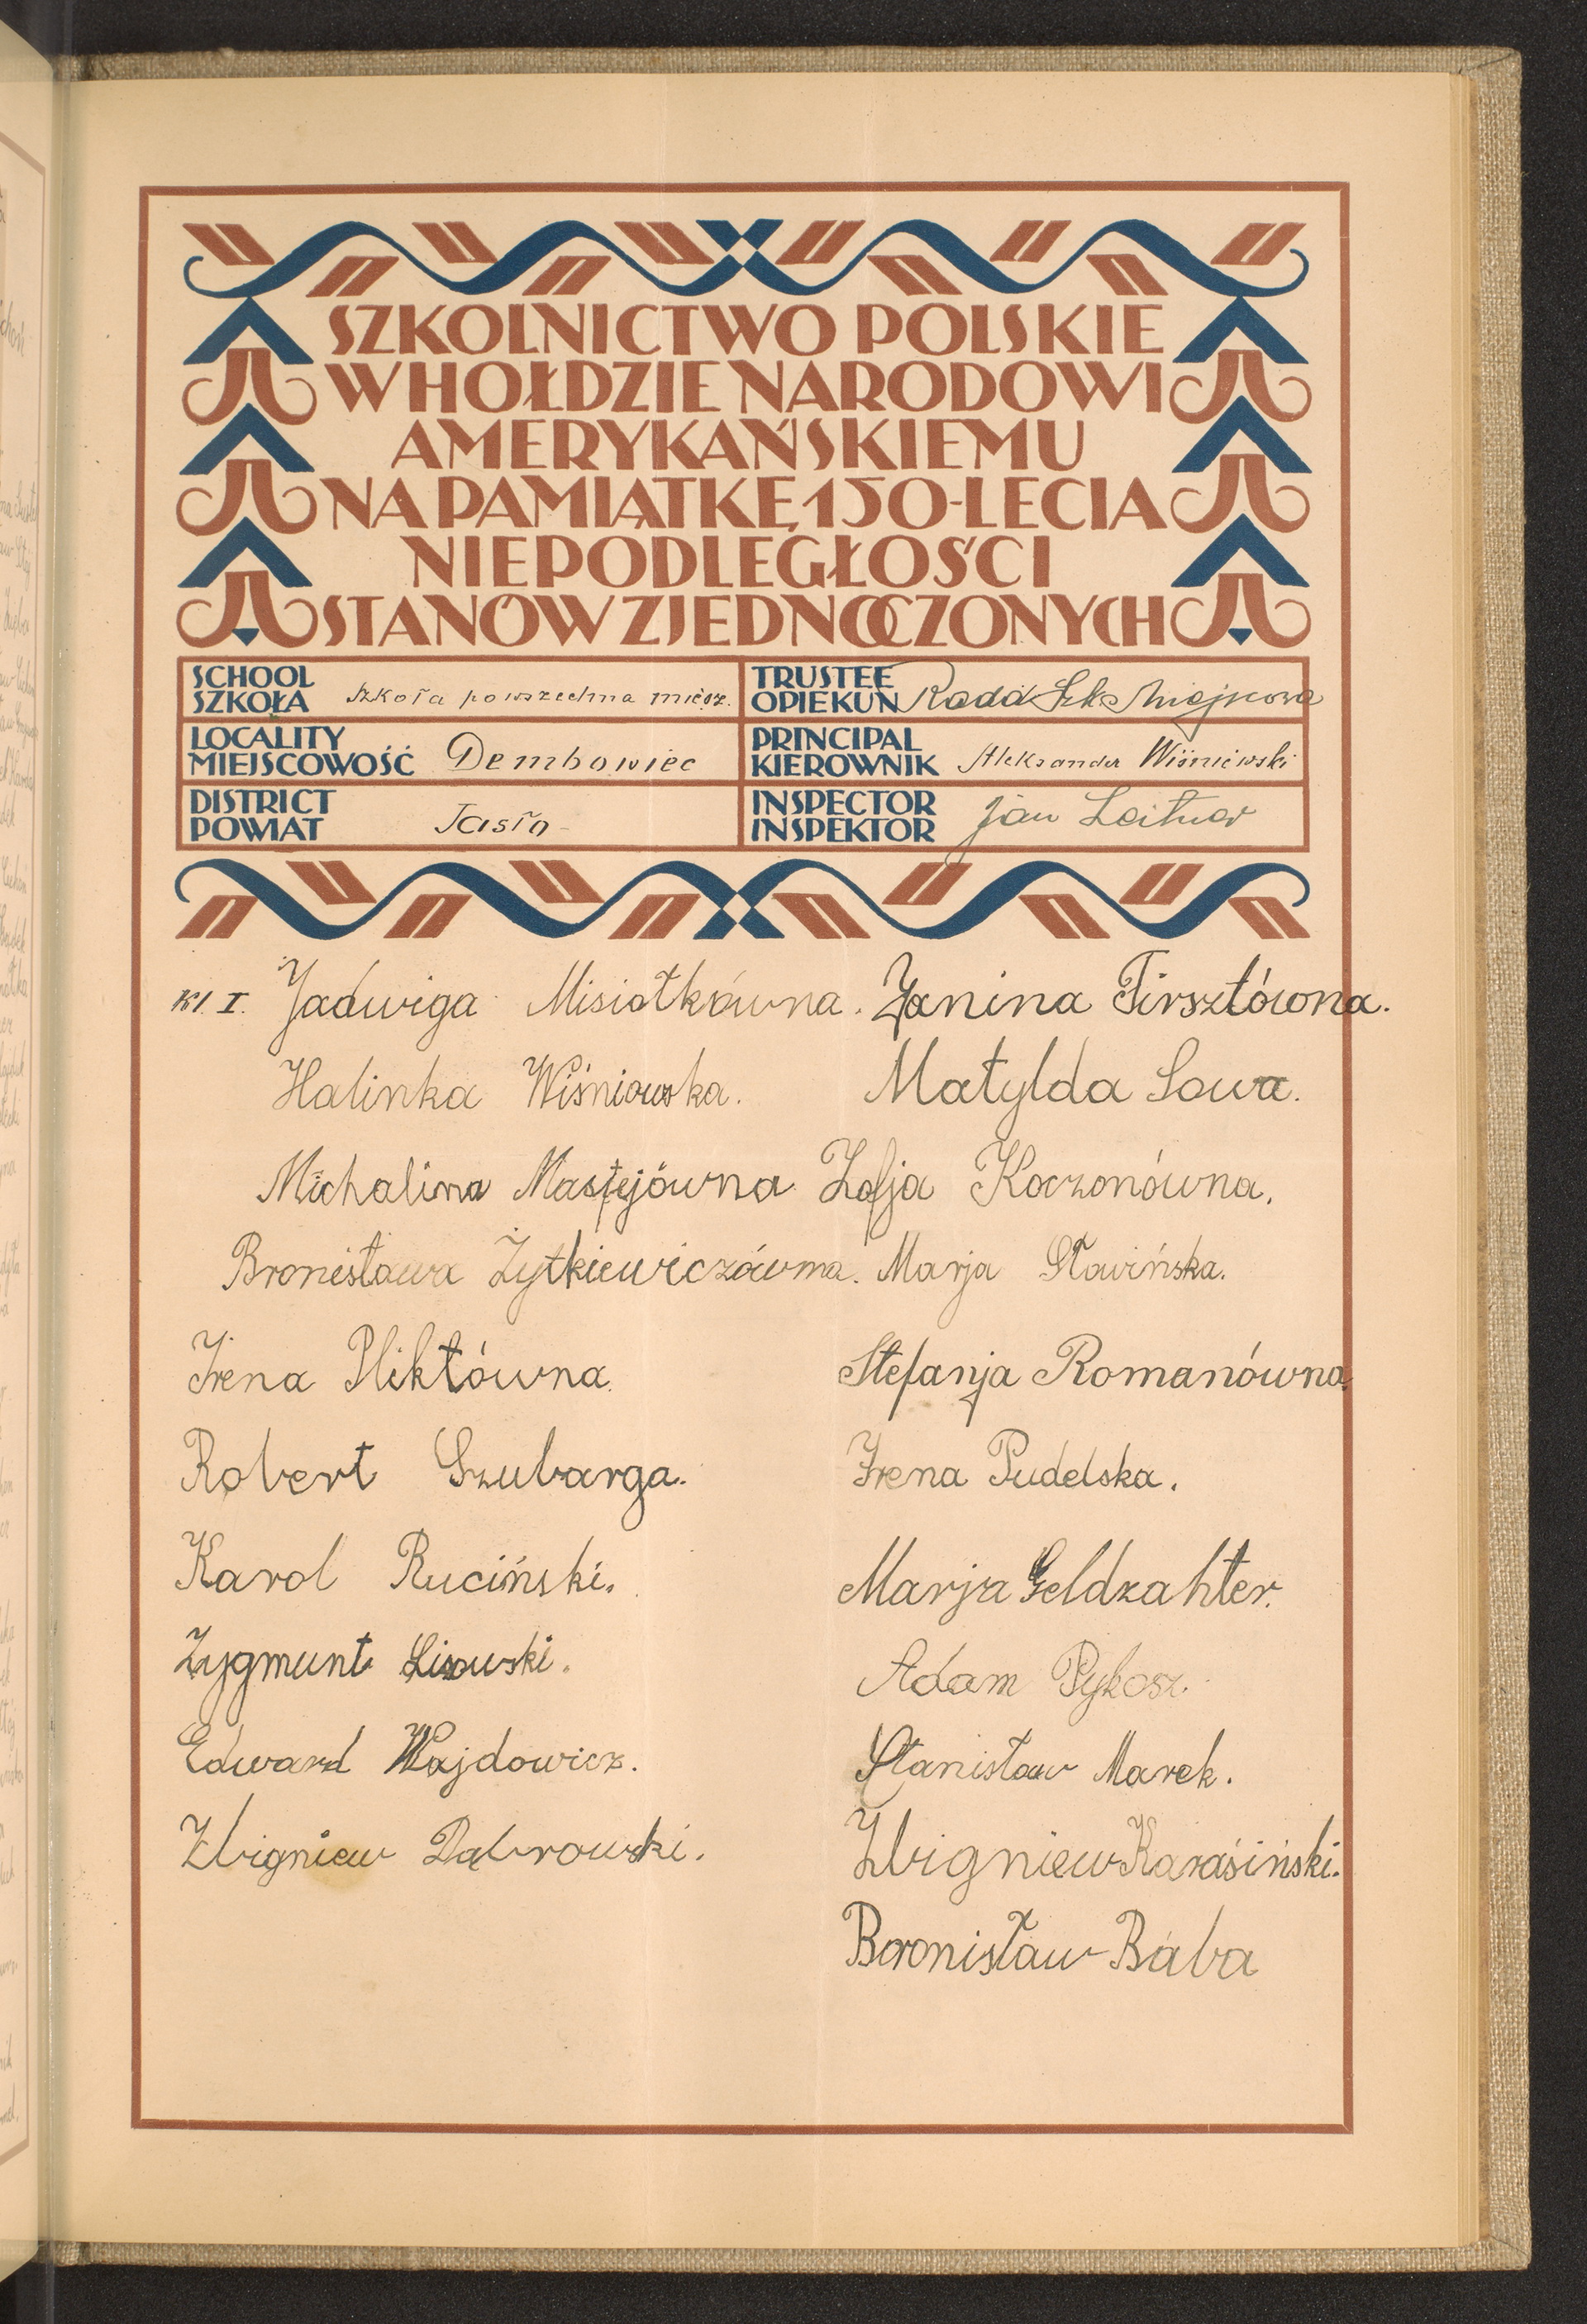 SZKOLNICTWO POLSKIE
W HOŁDZIE NARODOWI
AMERYKAŃSKIEMU
NA PAMIĄTKĘ 150-LECIA
NIEPODLEGŁOŚCI
STANÓW ZJEDNOCZONYCH
SCHOOL
SZKOŁA Szkoła powszechna miesz.
TRUSTEE
OPIEKUN Rada Szk. Miejscowa
LOCALITY
MIEJSCOWOŚĆ Dembowiec
PRINCIPAL
KIEROWNIK Aleksander Wiśniewski
DISTRICT
POWIAT Jasło
INSPECTOR
INSPEKTOR Jan Leitner
Kl. I. Jadwiga Misiołkówna. Janina Firsztówna.
Halinka Wiśniowska. Matylda Sowa.
Michalina Mastejówna Zofja Koczonówna.
Bronisława Żytkiewiczówna. Marja Sławińska.
Irena Pliktówna. Stefanja Romanówna.
Robert Szubarga. Irena Pudelska.
Karol Ruciński. Marja Geldzahler.
Zygmunt Lisowski. Adam Pykosz.
Edward Wajdowicz. Stanisław Marek.
Zbigniew Dąbrowski. Zbigniew Karaśiński.
Bronisław Baba